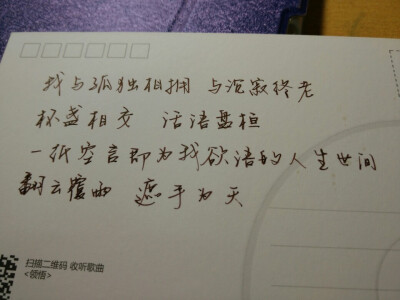 我与孤独相拥 与沉寂终老
杯盏相交 话语盘桓
一纸空言即为我欲语的人生世间
翻云覆雨 遮手为天
扫描二维码 收听歌曲
<领悟>